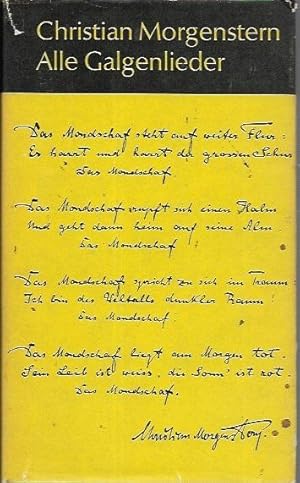 Christian Morgenstern
Alle Galgenlieder
Das Mondschaf steht auf weiter Flur:
Es harrt und harrt der grossen Schur
Das Mondschaf.
Das Mondschaf rupft sich einen Halm
Und geht dann heim auf seine Alm
Das Mondschaf
Das Mondschaf spricht zu sich im Traum:
Ich bin des Weltalls dunkler Raum!
Das Mondschaf.
Das Mondschaf liegt am Morgen tot.
Sein Leib ist weiss, die Sonn' ist rot.
Das Mondschaf.
Christian Morgenstern